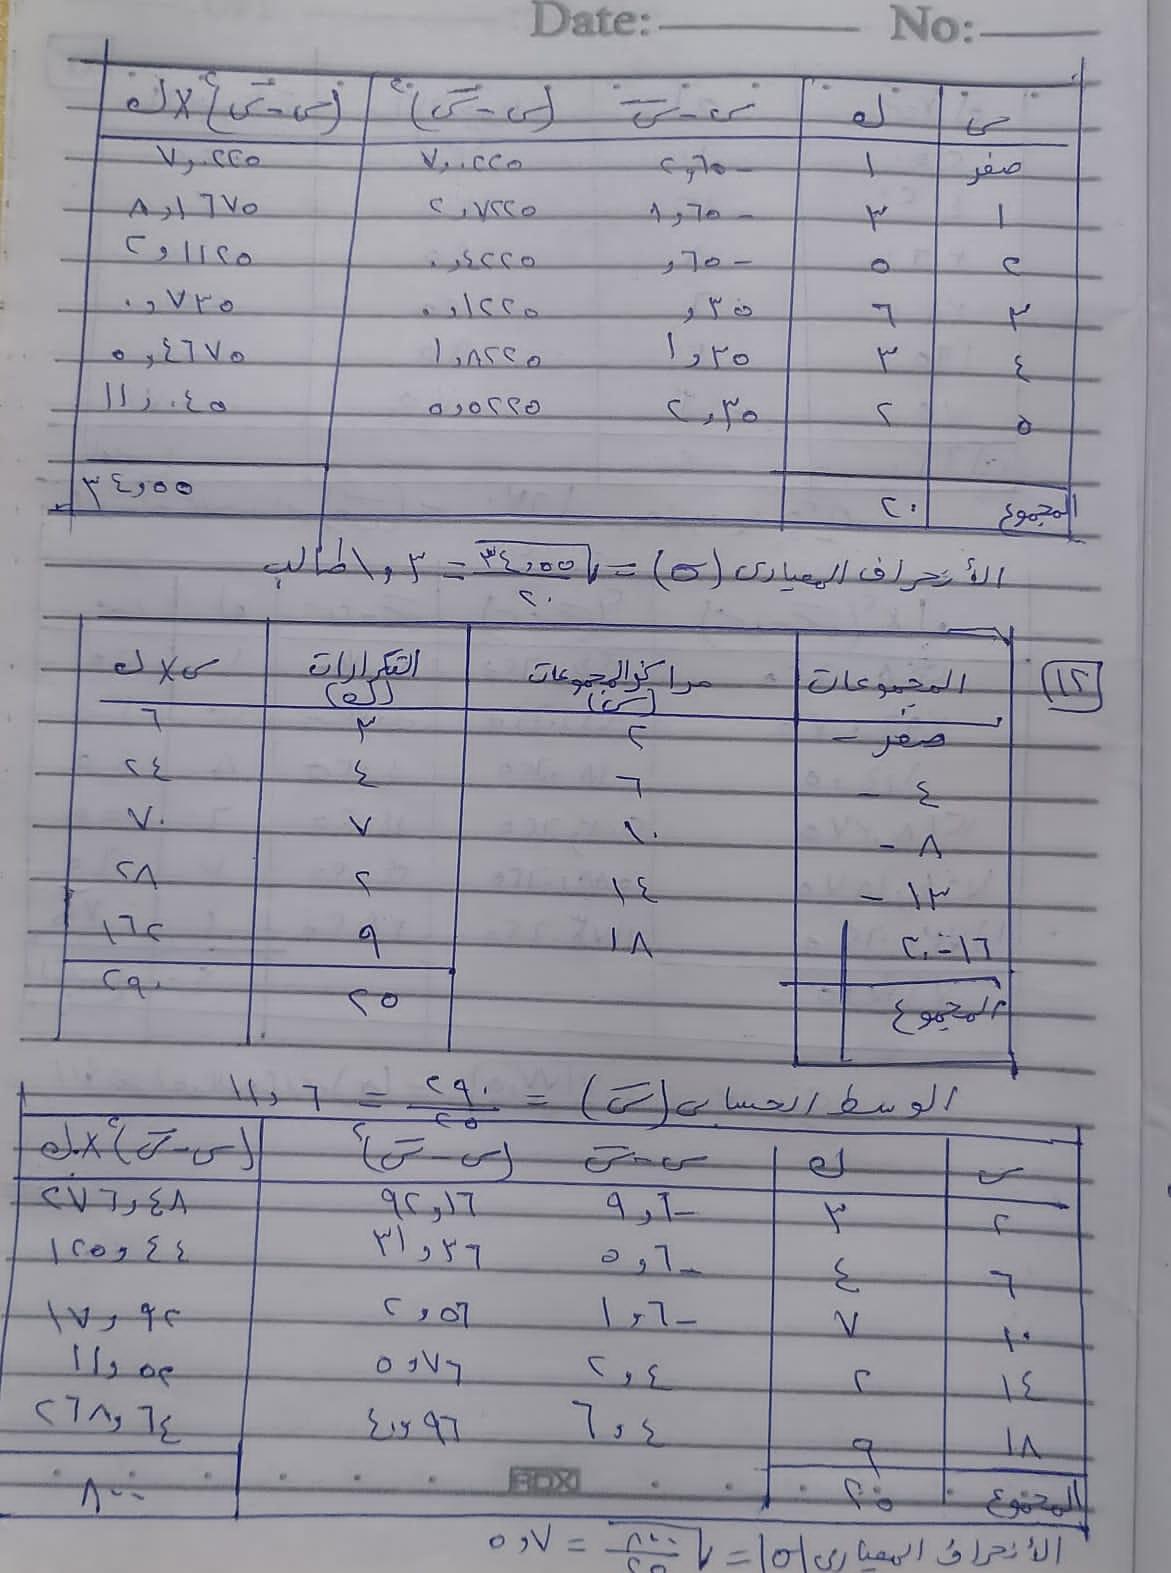 Date: No:
س ك س - س̄ (س - س̄)٢ (س - س̄)٢ × ك
صفر ١ -٢,٦٥ ٧,٠٢٢٥ ٧,٠٢٢٥
١ ٣ -١,٦٥ ٢,٧٢٢٥ ٨,١٦٧٥
٢ ٥ -,٦٥ ٠,٤٢٢٥ ٢,١١٢٥
٣ ٦ ,٣٥ ٠,١٢٢٥ ٠,٧٣٥
٤ ٣ ١,٣٥ ١,٨٢٢٥ ٥,٤٦٧٥
٥ ٢ ٢,٣٥ ٥,٥٢٢٥ ١١,٠٤٥
المجموع ٢٠ ٣٤,٥٥
الأنحراف المعيارى (σ) = √٣٤,٥٥/٢٠ = ١,٣ طالب
١٢
المجموعات مراكز المجموعات (س) التكرارات (ك) س × ك
صفر - ٢ ٣ ٦
٤ - ٦ ٤ ٢٤
٨ - ١٠ ٧ ٧٠
١٣ - ١٤ ٢ ٢٨
١٦ - ٢٠ ١٨ ٩ ١٦٢
المجموع ٢٥ ٢٩٠
الوسط الحسابى (س̄) = ٢٩٠/٢٥ = ١١,٦
س ك س - س̄ (س - س̄)٢ (س - س̄)٢ × ك
٢ ٣ -٩,٦ ٩٢,١٦ ٢٧٦,٤٨
٦ ٤ -٥,٦ ٣١,٣٦ ١٢٥,٤٤
١٠ ٧ -١,٦ ٢,٥٦ ١٧,٩٢
١٤ ٢ ٢,٤ ٥,٧٦ ١١,٥٢
١٨ ٩ ٦,٤ ٤٠,٩٦ ٣٦٨,٦٤
المجموع ٢٥ ٨٠٠
الأنحراف المعيارى (σ) = √٨٠٠/٢٥ = ٥,٧